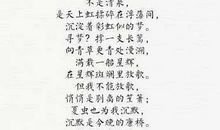 不是清泉，
是天上虹揉碎在浮藻间，
沉淀着彩虹似的梦。
寻梦？撑一支长篙，
向青草更青处漫溯，
满载一船星辉，
在星辉斑斓里放歌。
但我不能放歌，
悄悄是别离的笙箫；
夏虫也为我沉默，
沉默是今晚的康桥。